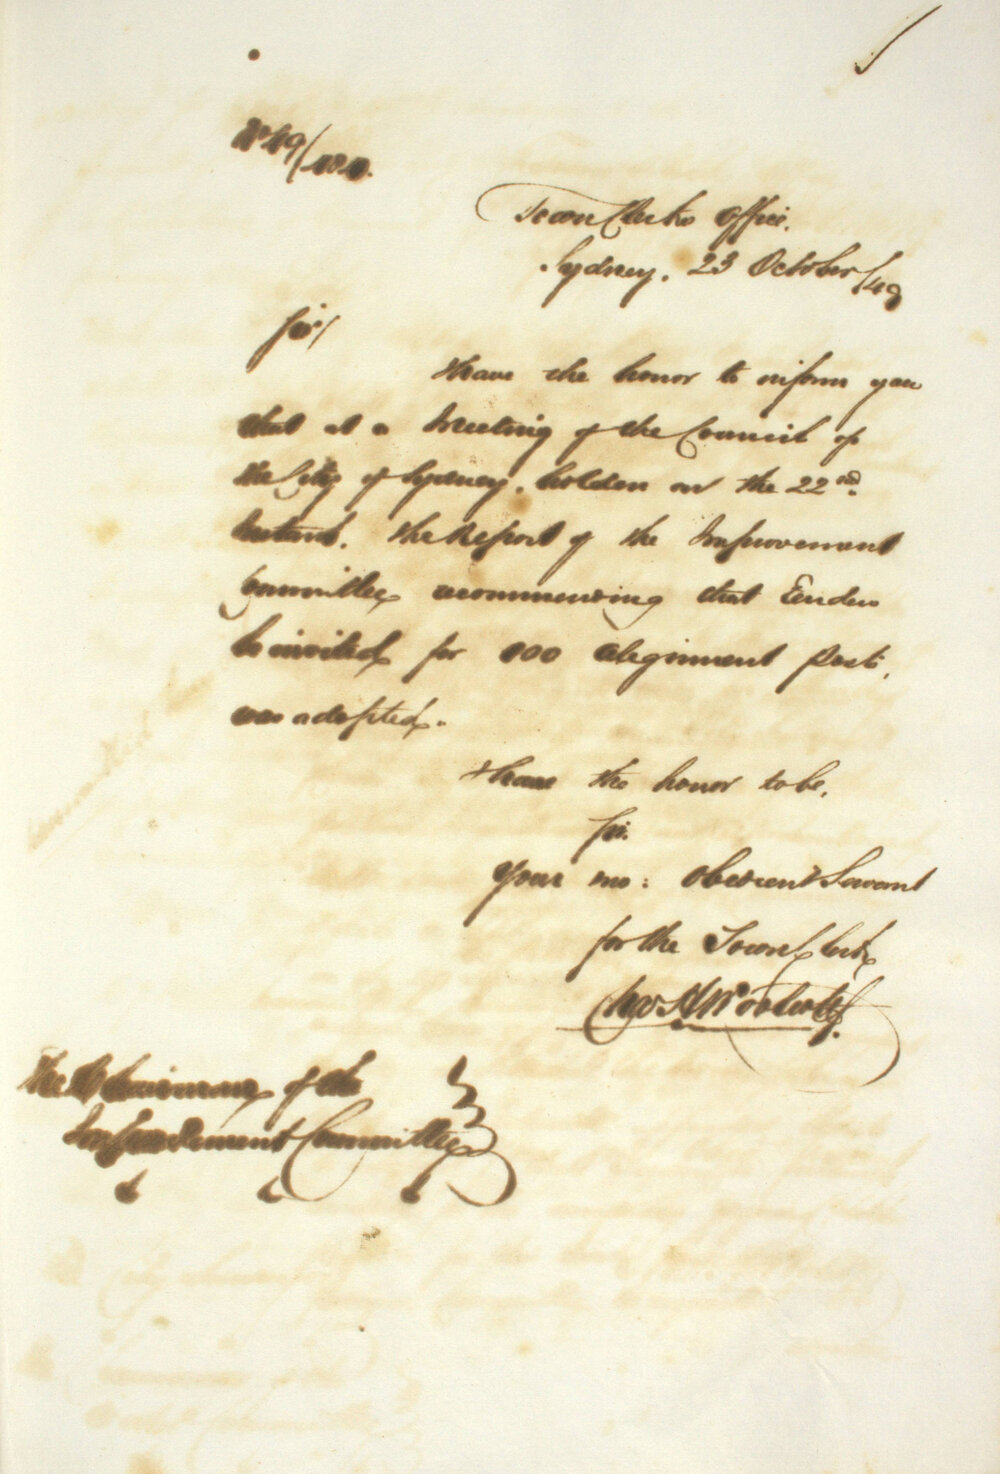 No 49/
Town Clerks Office.
Sydney. 23 October /49
Sir/
I have the honor to inform you
that at a Meeting of the Council of
the City of Sydney, holden on the 22nd.
Instant. the Report of the Improvement
Committee recommending that Tenders
be invited for 100 Alignment Posts,
was adopted.
I have the honor to be,
Sir.
Your mo: Obedient Servant
for the Town Clerk
Chas H Woolcott
The Chairman of the
Improvement Committee